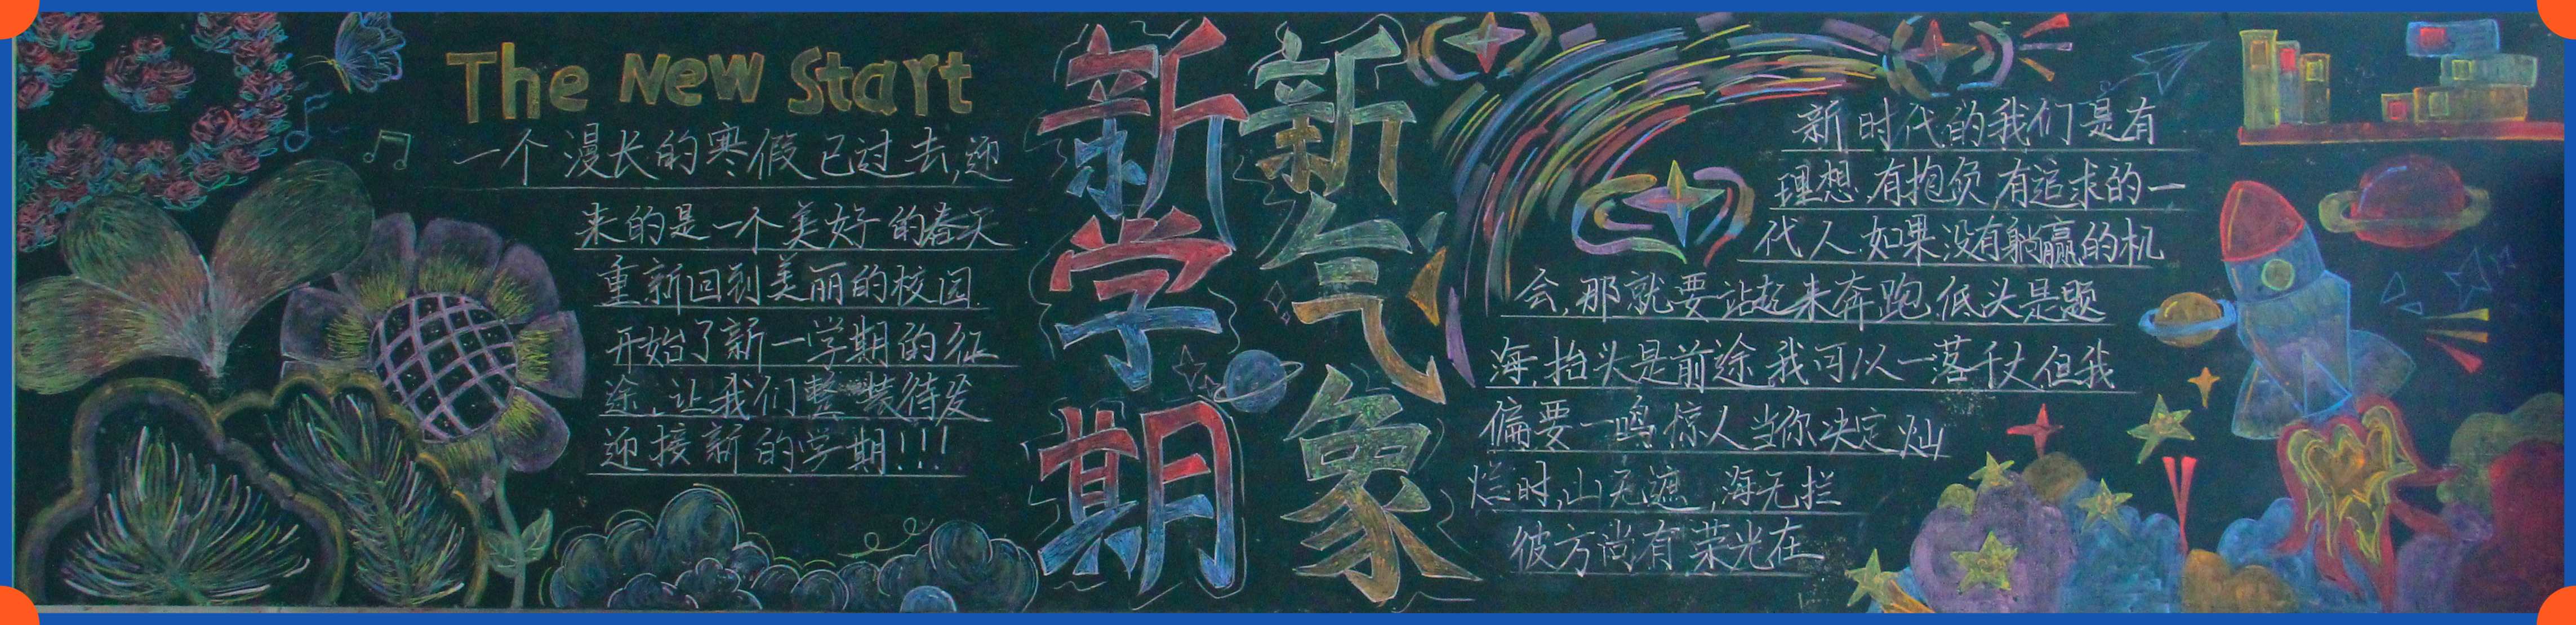 The New Start
一个漫长的寒假已过去,迎
来的是一个美好的春天
重新回到美丽的校园.
开始了新一学期的征
途,让我们整装待发
迎接新的学期!!!
新学期
新气象
新时代的我们是有
理想,有抱负,有追求的一
代人.如果没有躺赢的机
会,那就要站起来奔跑.低头是题
海,抬头是前途,我可以一落千丈,但我
偏要一鸣惊人当你决定灿
烂时,山无遮,海无拦
彼方尚有荣光在